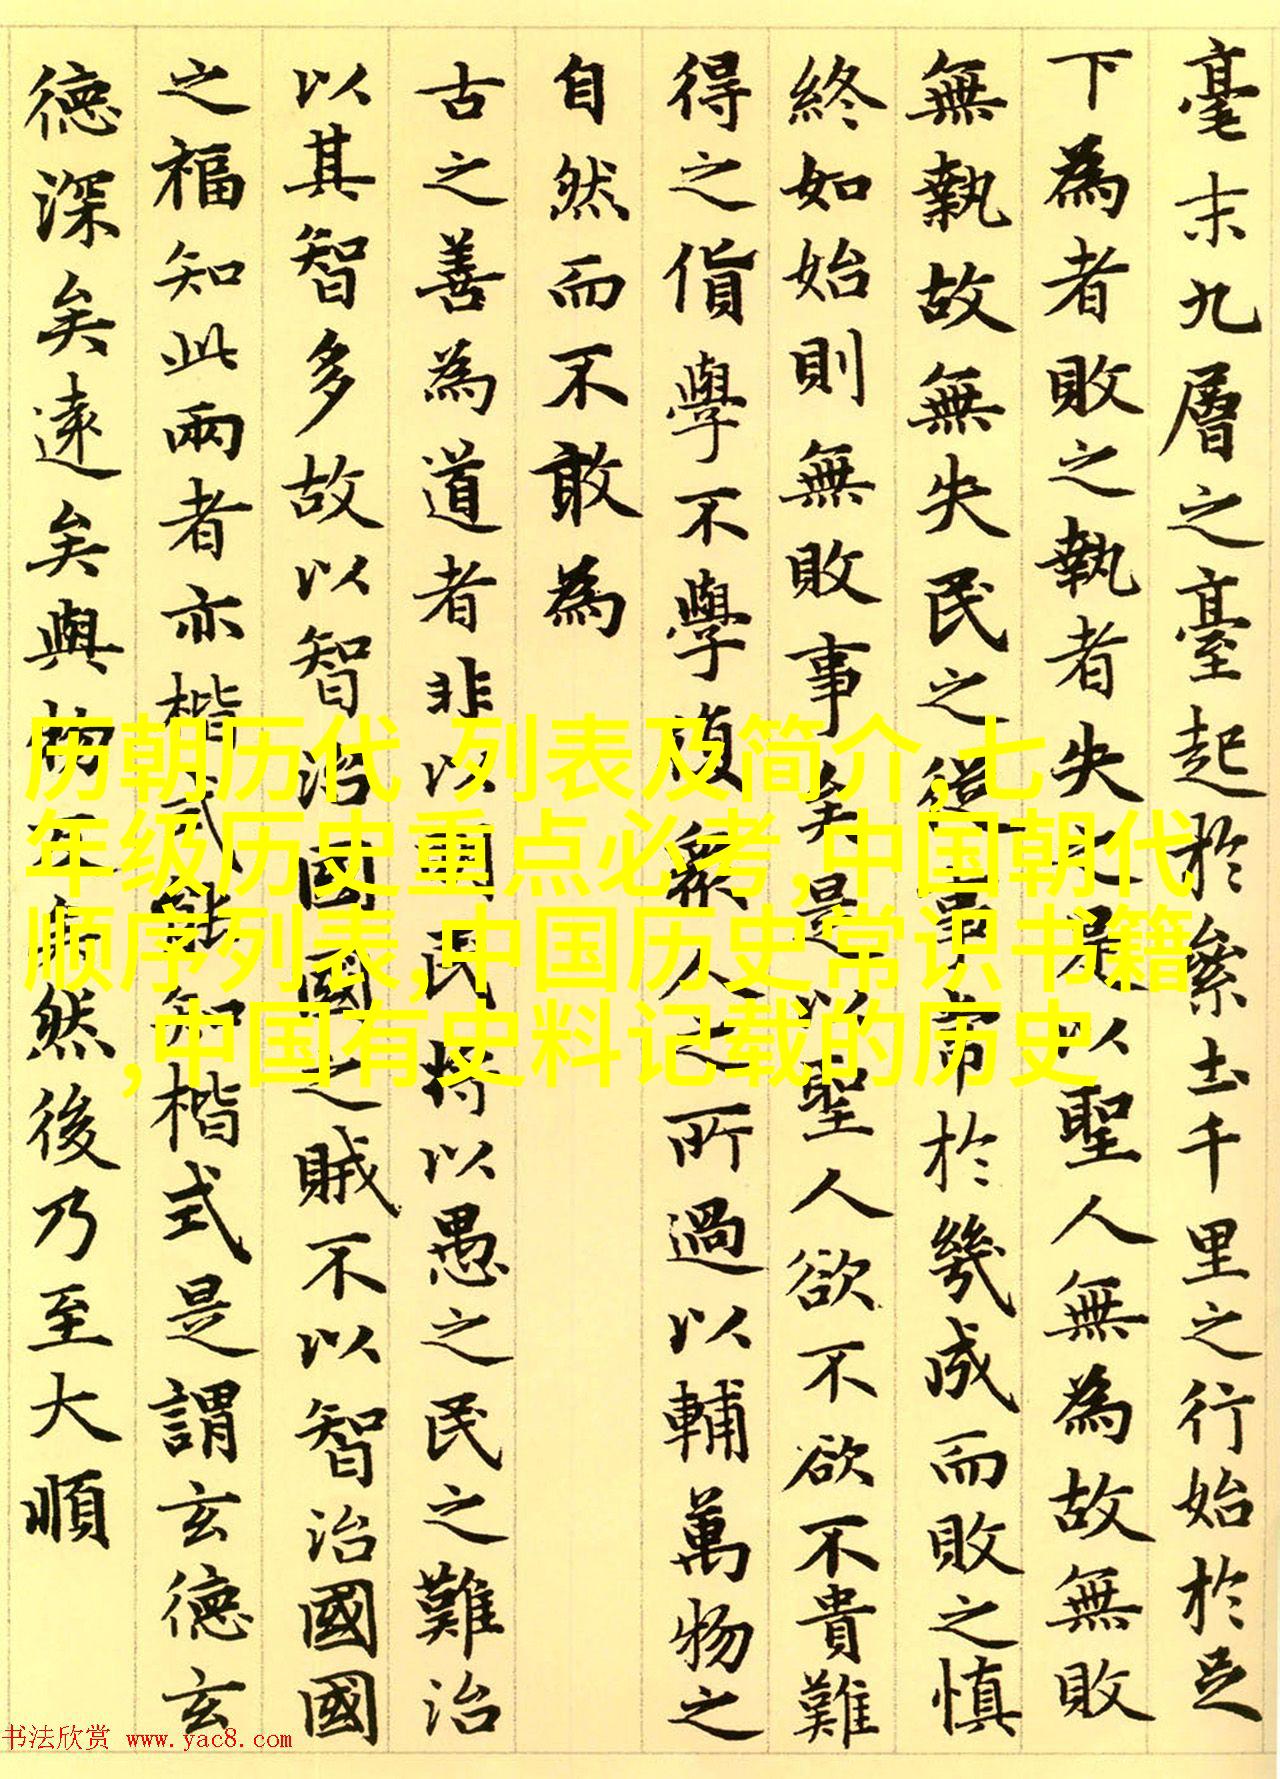 毫末九層之臺起於絫土千里之行始於足
下為者敗之執者失之是以聖人無為故無敗
無執故無失民之從事常於幾成而敗之慎
終如始則無敗事矣是以聖人欲不欲不貴難
得之貨學不學復衆人之所過以輔萬物之
自然而不敢為
古之善為道者非以明民將以愚之民之難治
以其智多故以智治國國之賊不以智治國國
之福知此兩者亦楷式能知楷式是謂玄德玄
德深矣遠矣與物反矣然後乃至大順
历朝历代 列表及简介,七
年级历史重点必考,中国朝代
顺序列表,中国历史常识书籍
,中国有史料记载的历史
书法欣赏 www.yac8.com